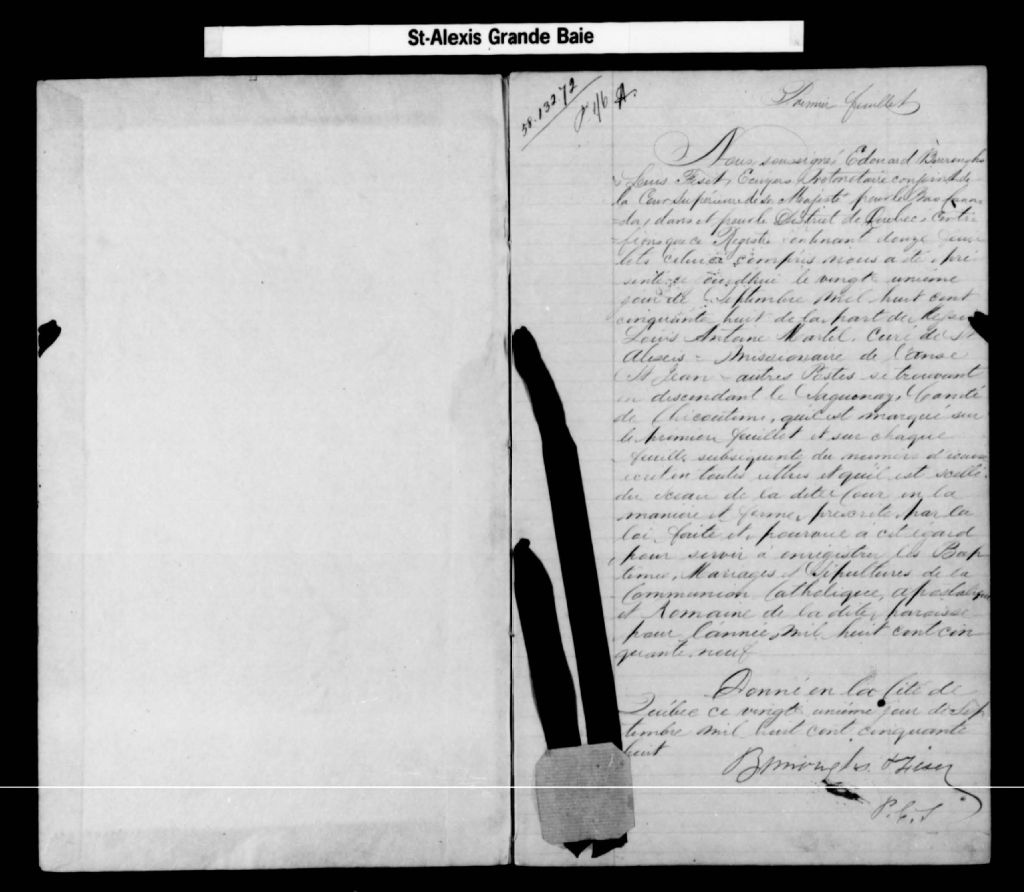 St-Alexis Grande Baie
58.13272
A.
Premier feuillet
Nous soussigné Edouard Burroughs
& Louis Fiset, Ecuyers Protonotaire conjoint de
la Cour Supérieure de sa Majesté pour le Bas Cana-
da, dans et pour le District de Québec, Certi-
fions que ce Registre contenant douze feuil-
lets celui ci compris nous a été pré-
senté ce jourd'hui le vingt unième
jour de Septembre mil huit cent
cinquante huit de la part de Messire
Louis Antoine Martel, Curé de St
Alexis = Missionaire de l'anse
St Jean - autres Postes se trouvant
en descendant le Saguenay, Comté
de Chicoutimi, qu'il est marqué sur
le premier feuillet et sur chaque
feuille subsequente du numero d'iceux
écrit en toutes lettres et qu'il est scellé
du sceau de la dite Cour en la
manière et forme, prescrite par la
loi, faite et, pourvue à cet égard
pour servir à enregistrer les Bap-
têmes, Mariages et Sépultures de la
Communion Catholique, apostolique
et Romaine de la dite, paroisse
pour l'année, mil huit cent cin
quante, neuf
Donné en la Cité de
Québec ce vingt unième jour de Sep
tembre mil huit cent cinquante
huit
Burroughs & Fiset
P.C.S